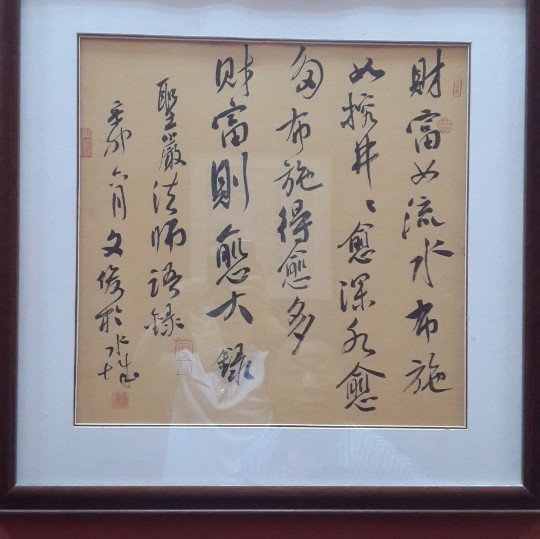 財富如流水布施
如挖井々愈深水愈
多布施得愈多
財富則愈大錄
聖嚴法師語錄
辛卯六月文俊於水城